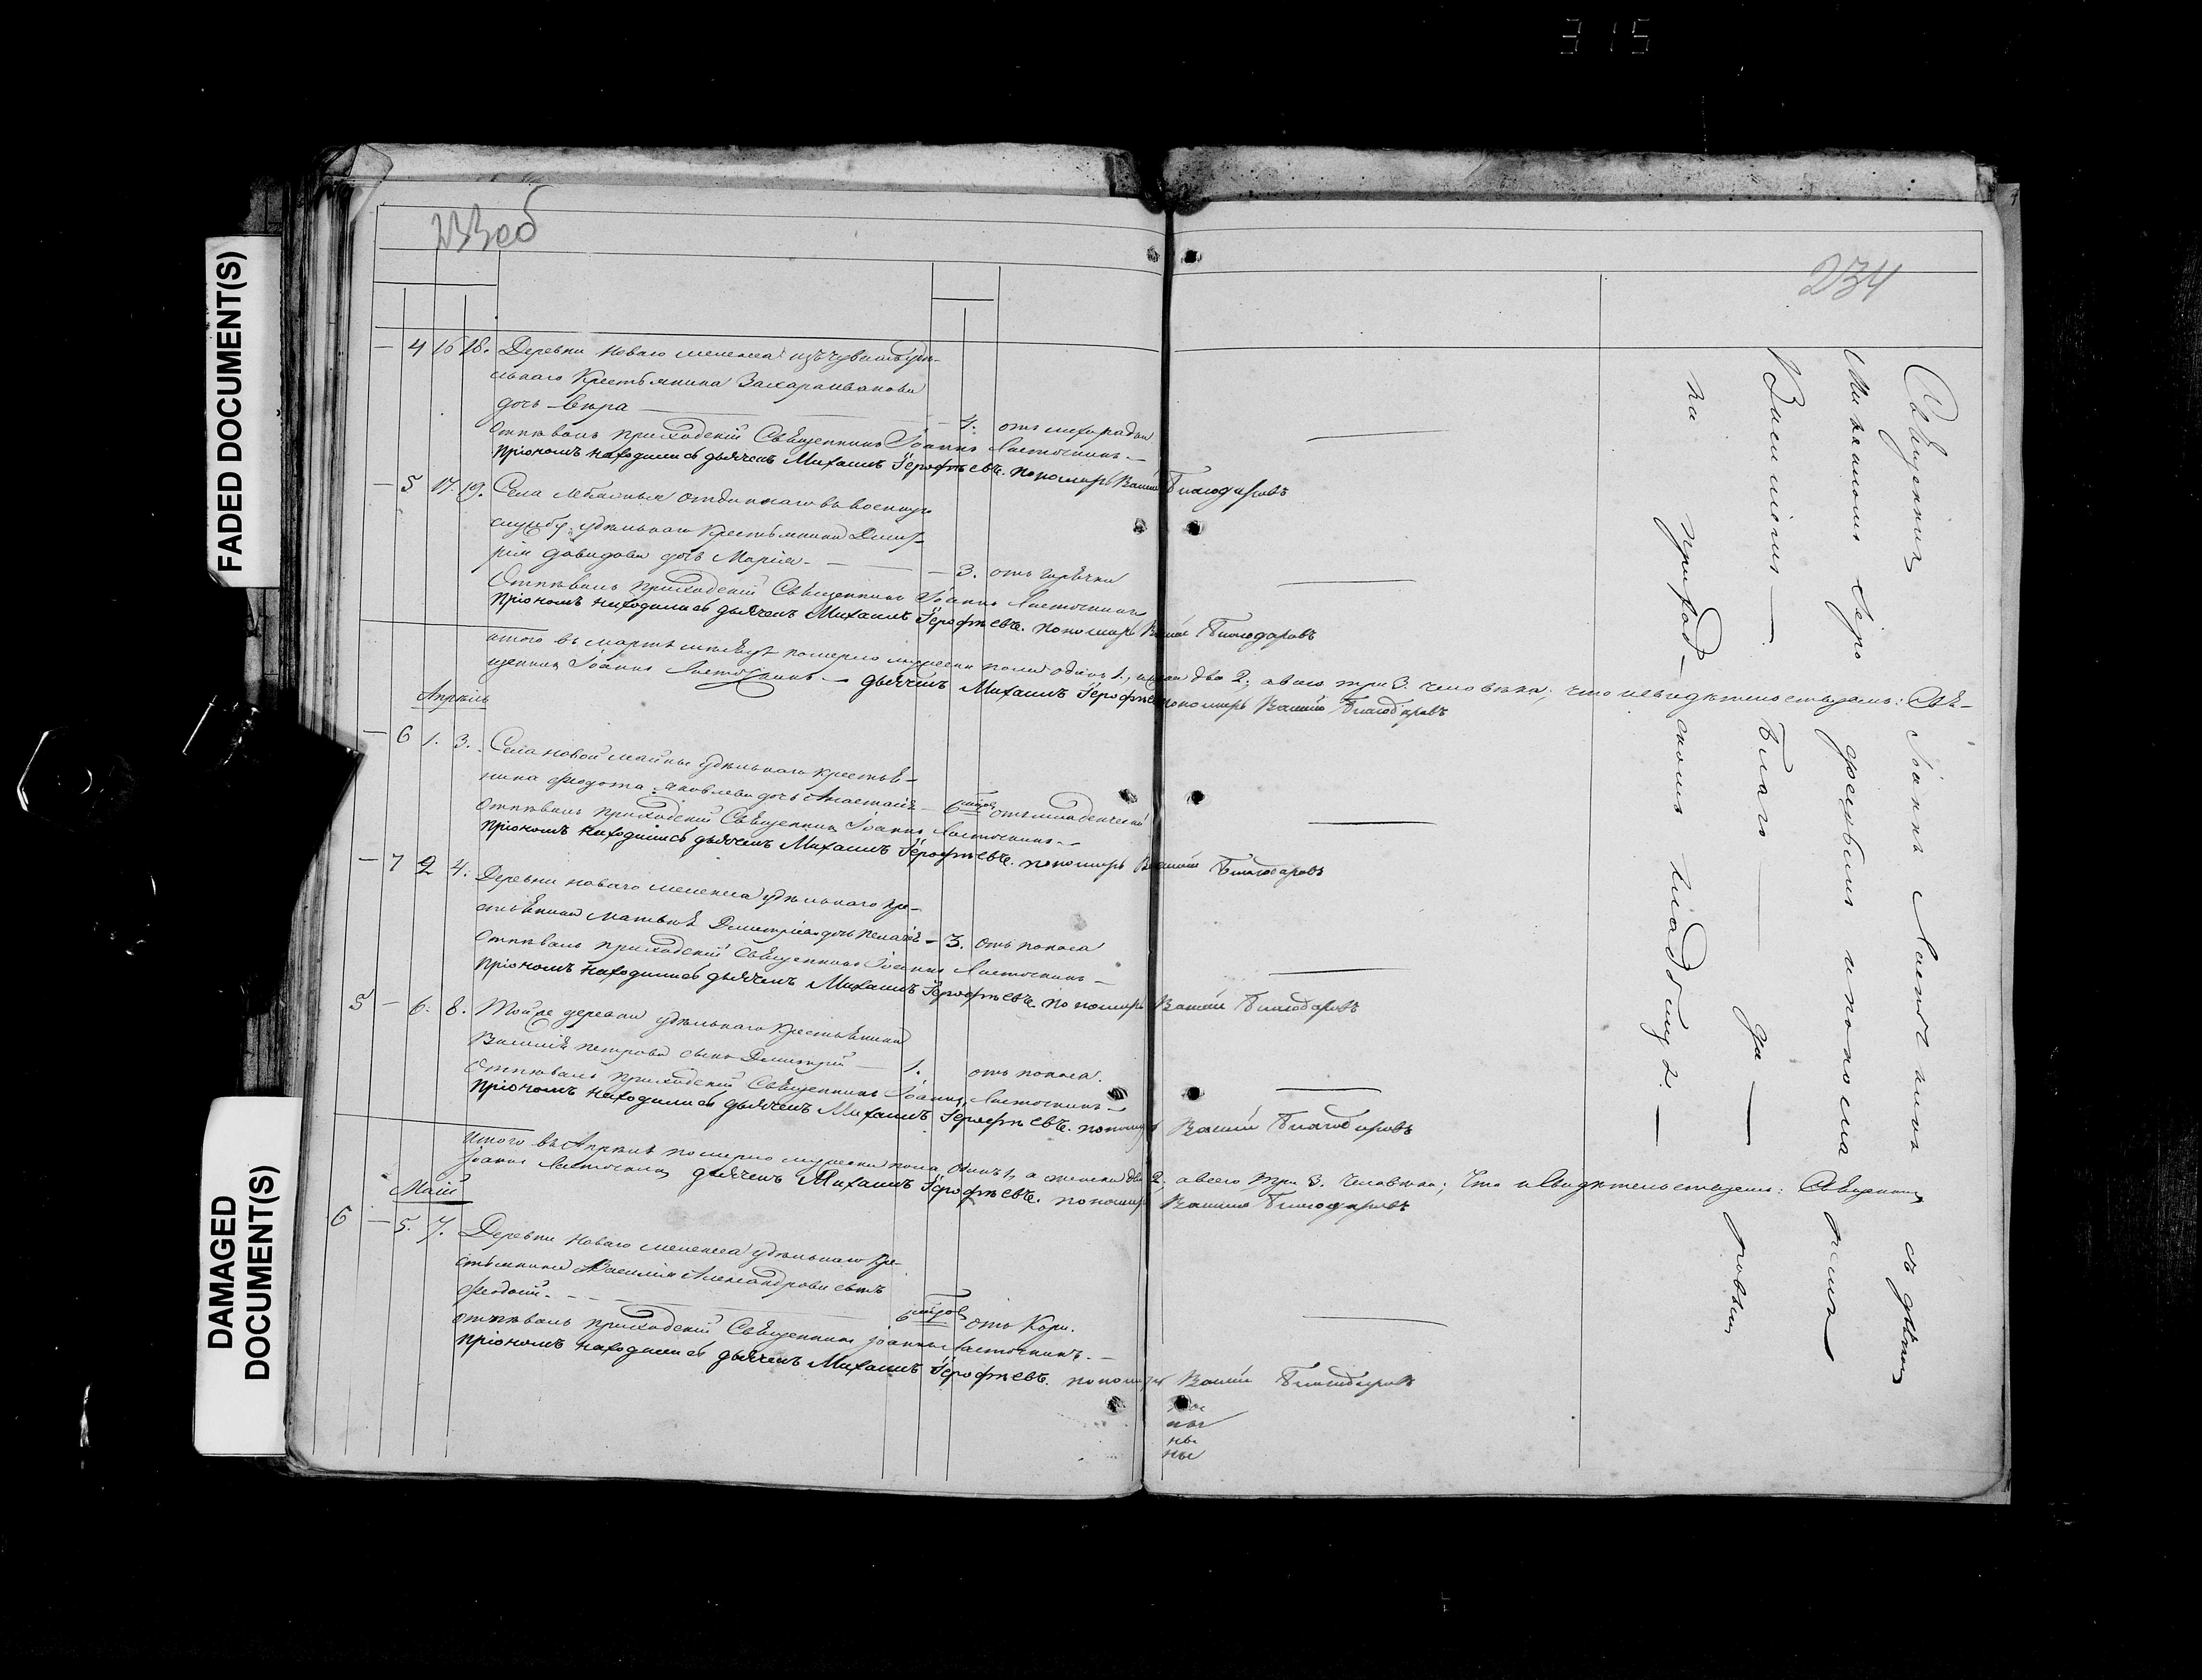 315
FADED DOCUMENT(S)
DAMAGED
DOCUMENT(S)
233об
234
— 4 16 18. Деревни Новаго мелекеса изъ чувашъ удѣ-
льнаго Крестьянина Захара Иванова
дочь Вѣра — 1. отъ лихорадки
Отпѣвалъ приходскій Священникъ Іоаннъ Ласточкинъ.
При ономъ находились дьячекъ Михаилъ Іерофѣевъ. пономарь Василій Благодаровъ
— 5 17. 19. Села отданнаго въ военную
службу удѣльнаго Крестьянина Дмит-
рія Давидова дочь Марія. — 3. отъ горячки
Отпѣвалъ приходскій Священникъ Іоаннъ Ласточкинъ
При ономъ находились дьячекъ Михаилъ Іерофѣевъ. пономарь Василій Благодаровъ
итого въ мартѣ померло мужеска пола одинъ 1, два 2; а всего три 3. человѣка; что и свидѣтельствуемъ: Свя-
щенникъ Іоаннъ Ласточкинъ — дьячекъ Михаилъ Іерофѣевъ пономарь Василій Благодаровъ
Апрѣль
— 6 1. 3. Села новой майны удѣльнаго крестья-
нина Федота Яковлева дочь Анастасія — 6 отъ младенческой
Отпѣвалъ приходскій Священникъ Іоаннъ Ласточкинъ
При ономъ находились дьячекъ Михаилъ Іерофѣевъ. пономарь Василій Благодаровъ
— 7 2 4. Деревни новаго мелекеса удѣльнаго кре-
стьянина Матвѣя Димитріева дочь Пелагея — 3. отъ поноса
Отпѣвалъ приходскій Священникъ Іоаннъ Ласточкинъ —
При ономъ находились дьячекъ Михаилъ Іерофѣевъ пономарь Василій Благодаровъ
5 — 6. 8. Той же деревни удѣльнаго Крестьянина
Василія петрова сынъ Димитрій — 1. отъ поноса.
Отпѣвалъ приходскій Священникъ Іоаннъ Ласточкинъ
При ономъ находились дьячекъ Михаилъ Іерофѣевъ. пономарь Василій Благодаровъ
Итого въ Апрѣлѣ померло мужеска пола одинъ 1, а женска два 2; а всего три 3. человѣка; что и свидѣтельствуемъ: Священникъ
Іоаннъ Ласточкинъ дьячекъ Михаилъ Іерофѣевъ. пономарь Василій Благодаровъ
Маій
6 — 5. 7. Деревни Новаго мелекеса удѣльнаго кре-
стьянина Василія Александрова сынъ
Феодосій. — 6 отъ Кори.
отпѣвалъ приходскій Священникъ Іоаннъ Ласточкинъ. —
При ономъ находились дьячекъ Михаилъ Іерофѣевъ. пономарь Василій Благодаровъ
ны
ны
Священникъ Іоаннъ Ласточкинъ съ дьячкомъ
Михаиломъ Іеро фѣевымъ и пономаремъ
Василіемъ — Благо — да — ровымъ
на приход — скомъ кладбищѣ. —